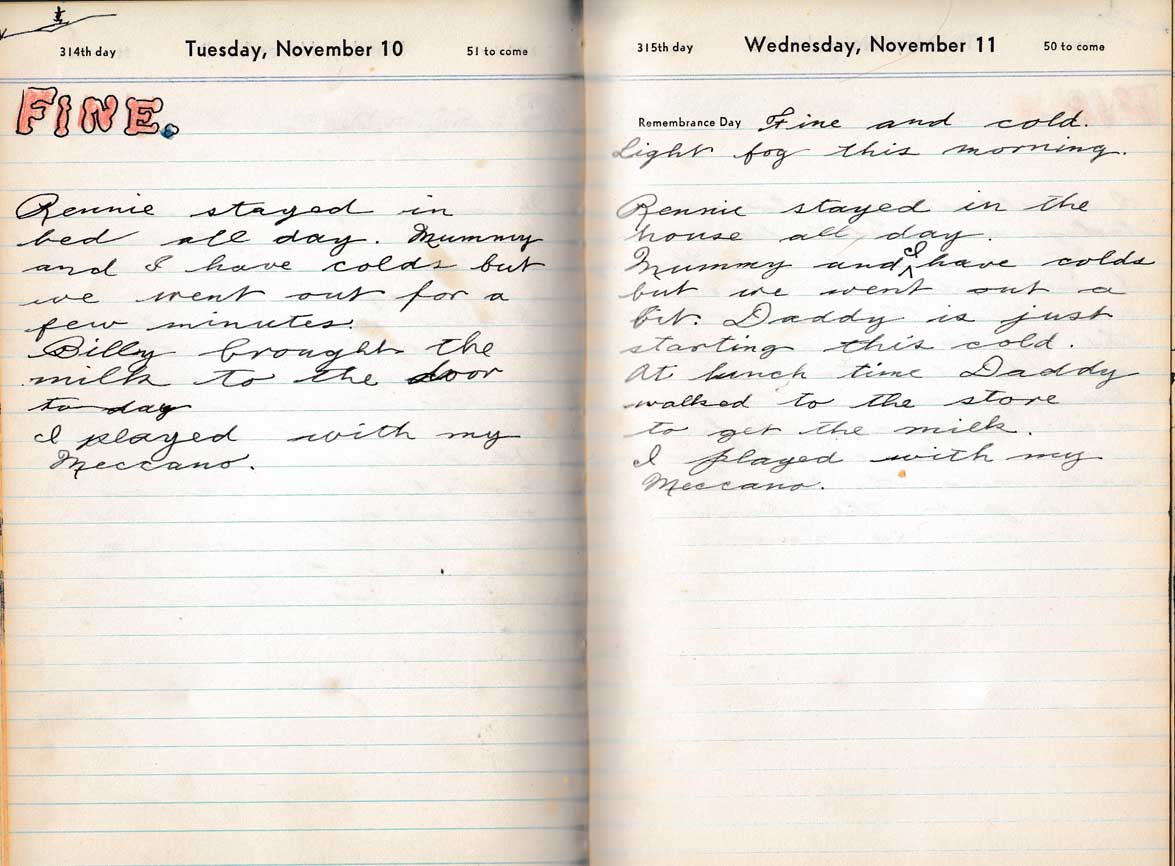 314th day Tuesday, November 10 51 to come
FINE.
Rennie stayed in
bed all day. Mummy
and I have colds but
we went out for a
few minutes.
Billy brought the
milk to the door
to day
I played with my
Meccano.
315th day Wednesday, November 11 50 to come
Remembrance Day Fine and cold.
Light fog this morning.
Rennie stayed in the
house all day.
Mummy and I have colds
but we went out a
bit. Daddy is just
starting this cold.
At lunch time Daddy
walked to the store
to get the milk.
I played with my
Meccano.